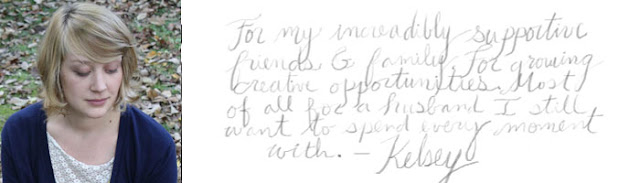 For my increadibly supportive
friends & family. For growing
creative opportunities. Most
of all for a husband I still
want to spend every moment
with. – Kelsey